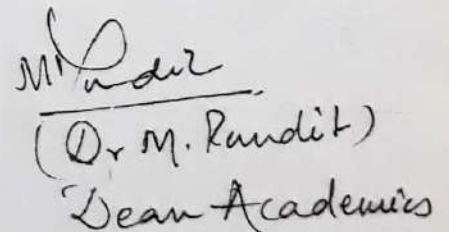 MPandit
(Dr M. Pandit)
Dean Academics